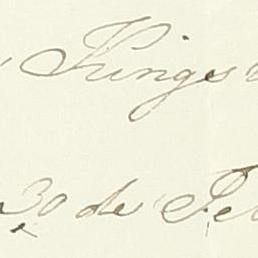 Kings
30 de Fe